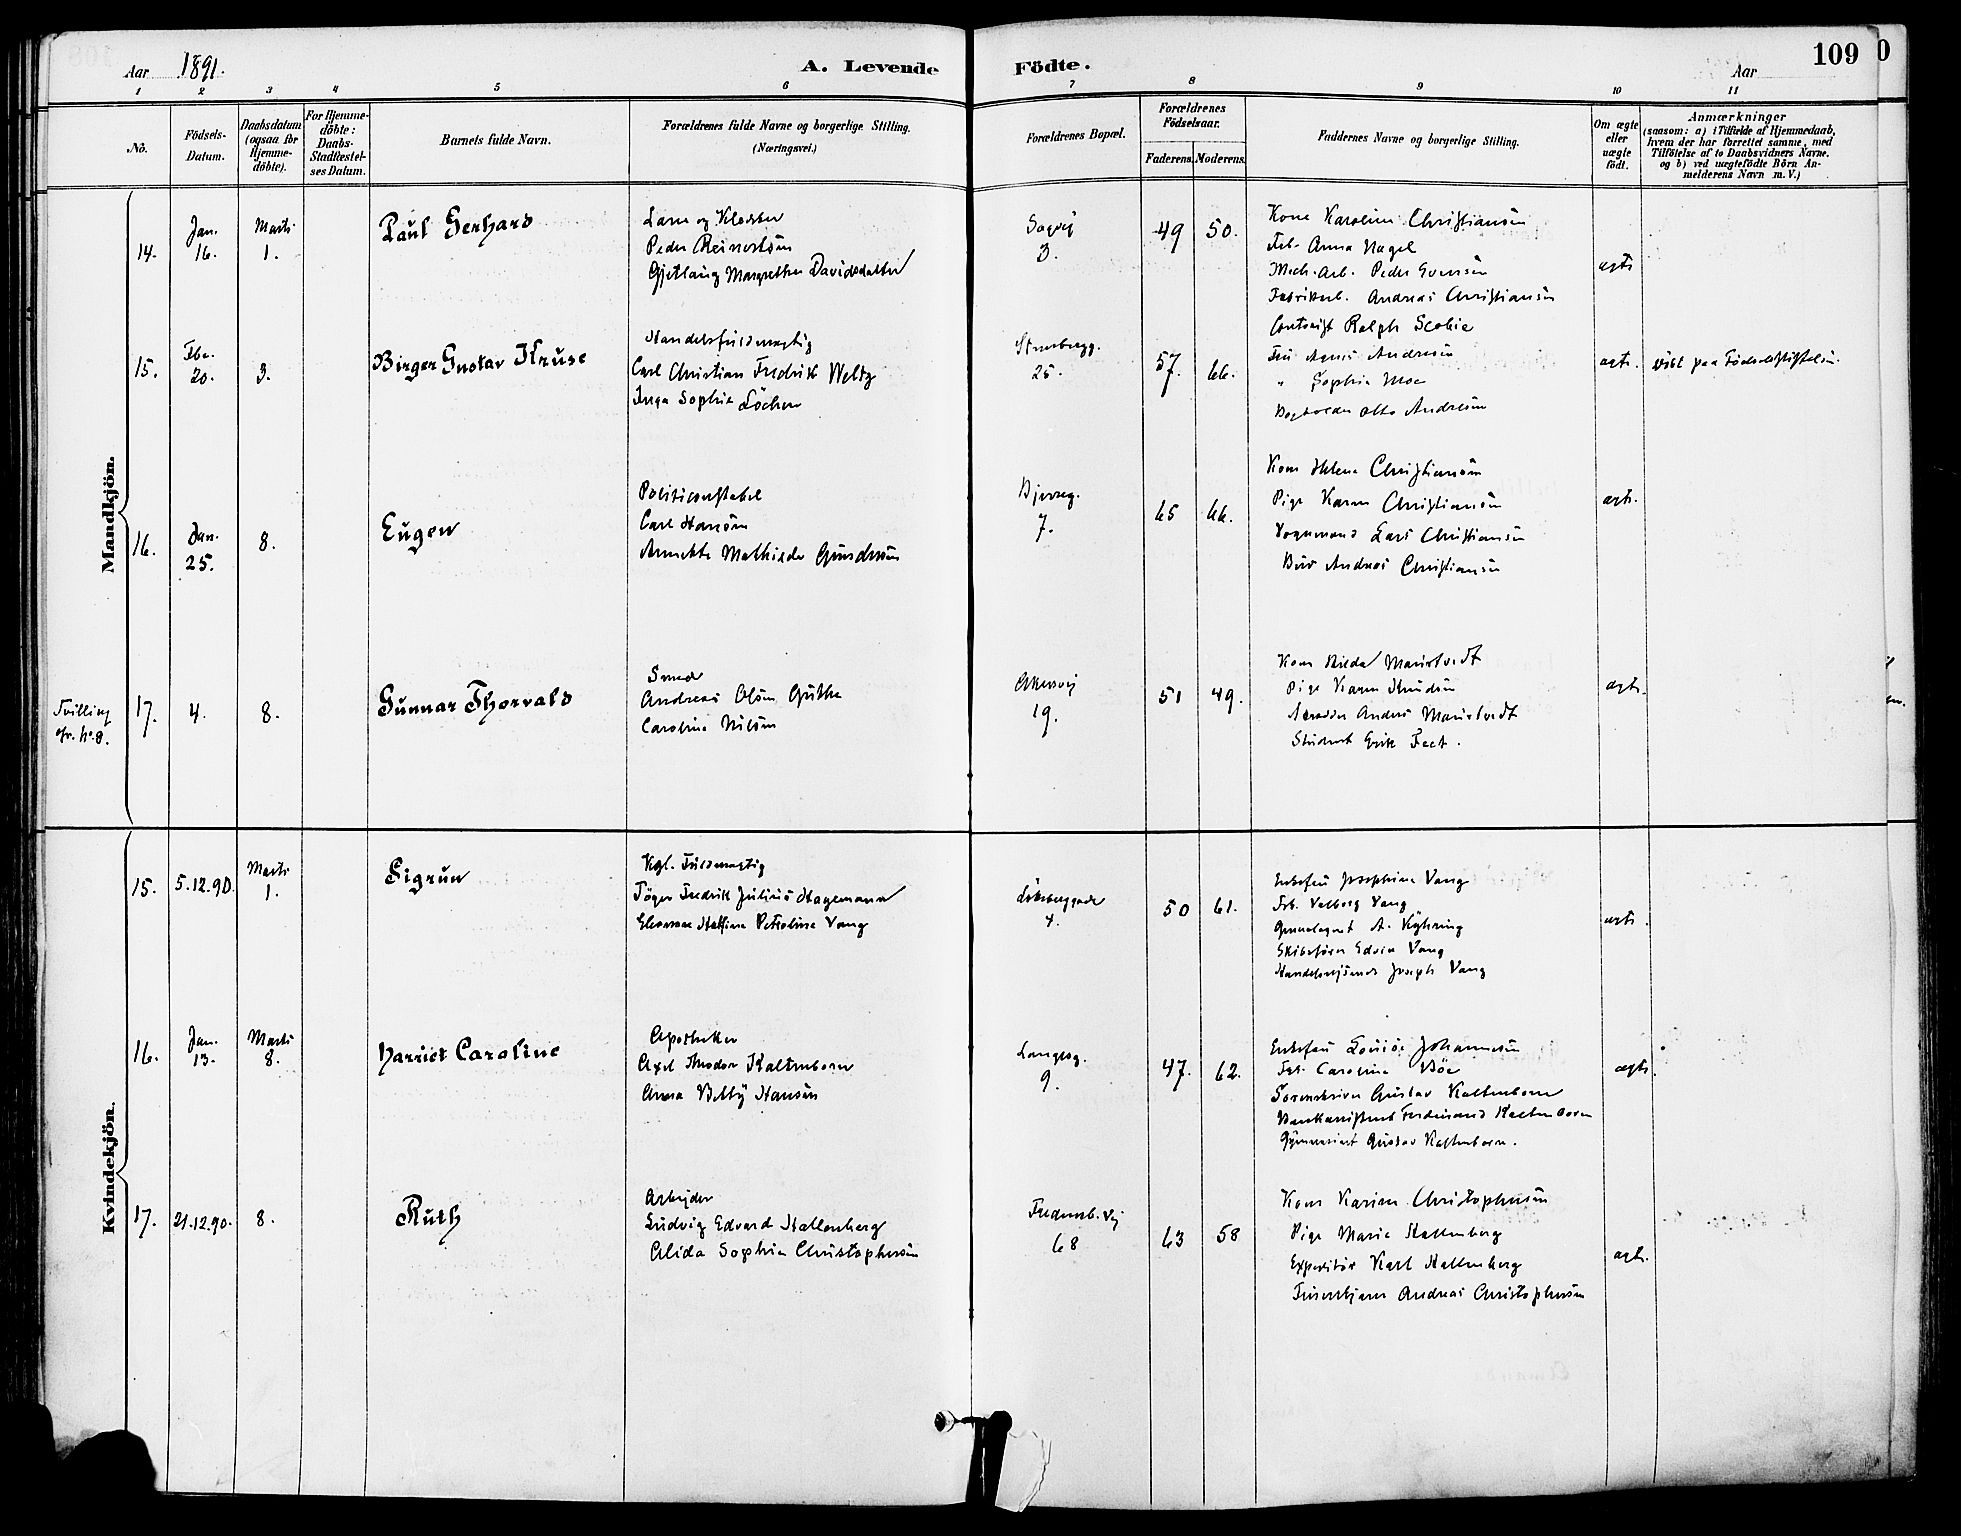 Aar 1891.
A. Levende Födte.
Aar
109
0
1 2 3 4 5 6 7 8 9 10 11
No.
Födsels-Datum.
Daabsdatum (ogsaa for Hjemme-döbte).
For Hjemme-döbte: Daabs-Stadfæstel-ses Datum.
Barnets fulde Navn.
Forældrenes fulde Navne og borgerlige Stilling.
(Næringsvei.)
Forældrenes Bopæl.
Forældrenes Födselsaar.
Faderens. Moderens.
Faddernes Navne og borgerlige Stilling.
Om ægte eller uægte födt.
Anmærkninger
(saasom: a) i Tilfælde af Hjemmedaab,
hvem der har forrettet samme, med
Tilföielse af to Daabsvidners Navne.
og b) ved uægtefödte Börn An-
melderens Navn m. V.)
Mandkjön.
14.
Jan. 16.
Marts 1.
Paul Gerhard
og
Peder
Margrethe Davidsdatter
3.
49 50.
Kone Karoline Christiansen
Frk. Anna Nagel
Mek. Arb. Peder
Andreas Christiansen
ægte
15.
Feb. 20.
3.
Birger Gustav Kruse
Handelsfuldmægtig
Carl Christian Fredrik Weltz
Inga Sophie Löchen
25.
57. 66.
Ralph Scobie
Fru Agnes Andresen
" Sophie Moe
Otto Andresen
ægte.
paa Fødselsstiftelsen.
16.
Jan. 25.
8.
Eugen
Politiconstabel
Carl Hansen
Mathilde Gundersen
7.
65 66.
Kone Helene Christiansen
Pige Karen Christiansen
Vognmand Lars Christiansen
Andreas Christiansen
ægte.
Tvilling
cfr. No. 8.
17.
4.
8.
Gunnar Thorvald
Smed
Andreas Olsen
Caroline Nilsen
Akersvej
19.
51 49.
Kone Hilda Maristvedt
Pige Karen Knudsen
Anders Maristvedt
Student Erik Feet.
ægte.
Kvindekjön.
15.
5.12.90.
Marts 1.
Sigrun
Kgl. Fuldmægtig
Fredrik Julius Hagemann
Petroline Vang
4.
50 61.
Enkefru Josephine Vang
Frk. Valborg Vang
A. Kyhring
Skibsfører Edvin Vang
Handelsrejsende Joseph Vang
ægte.
16.
Jan. 13.
Marts 8.
Harriet Caroline
Apotheker
Axel Theodor Kaltenborn
Anna Betty Hansen
Langesg.
9.
47. 62.
Enkefru Louise Johannesen
Frk. Caroline Böe
Sorenskriver Gustav Kaltenborn
Bankassistent Ferdinand Kaltenborn
Gymnasiast Gustav Kaltenborn.
ægte.
17.
21.12.90.
8.
Ruth
Arbejder
Ludvig Edvard Hallenberg
Alida Sophie Christophersen
68
63 58
Kone Karine Christophersen
Pige Marie Hallenberg
Expeditör Karl Hallenberg
Andreas Christophersen
ægte.